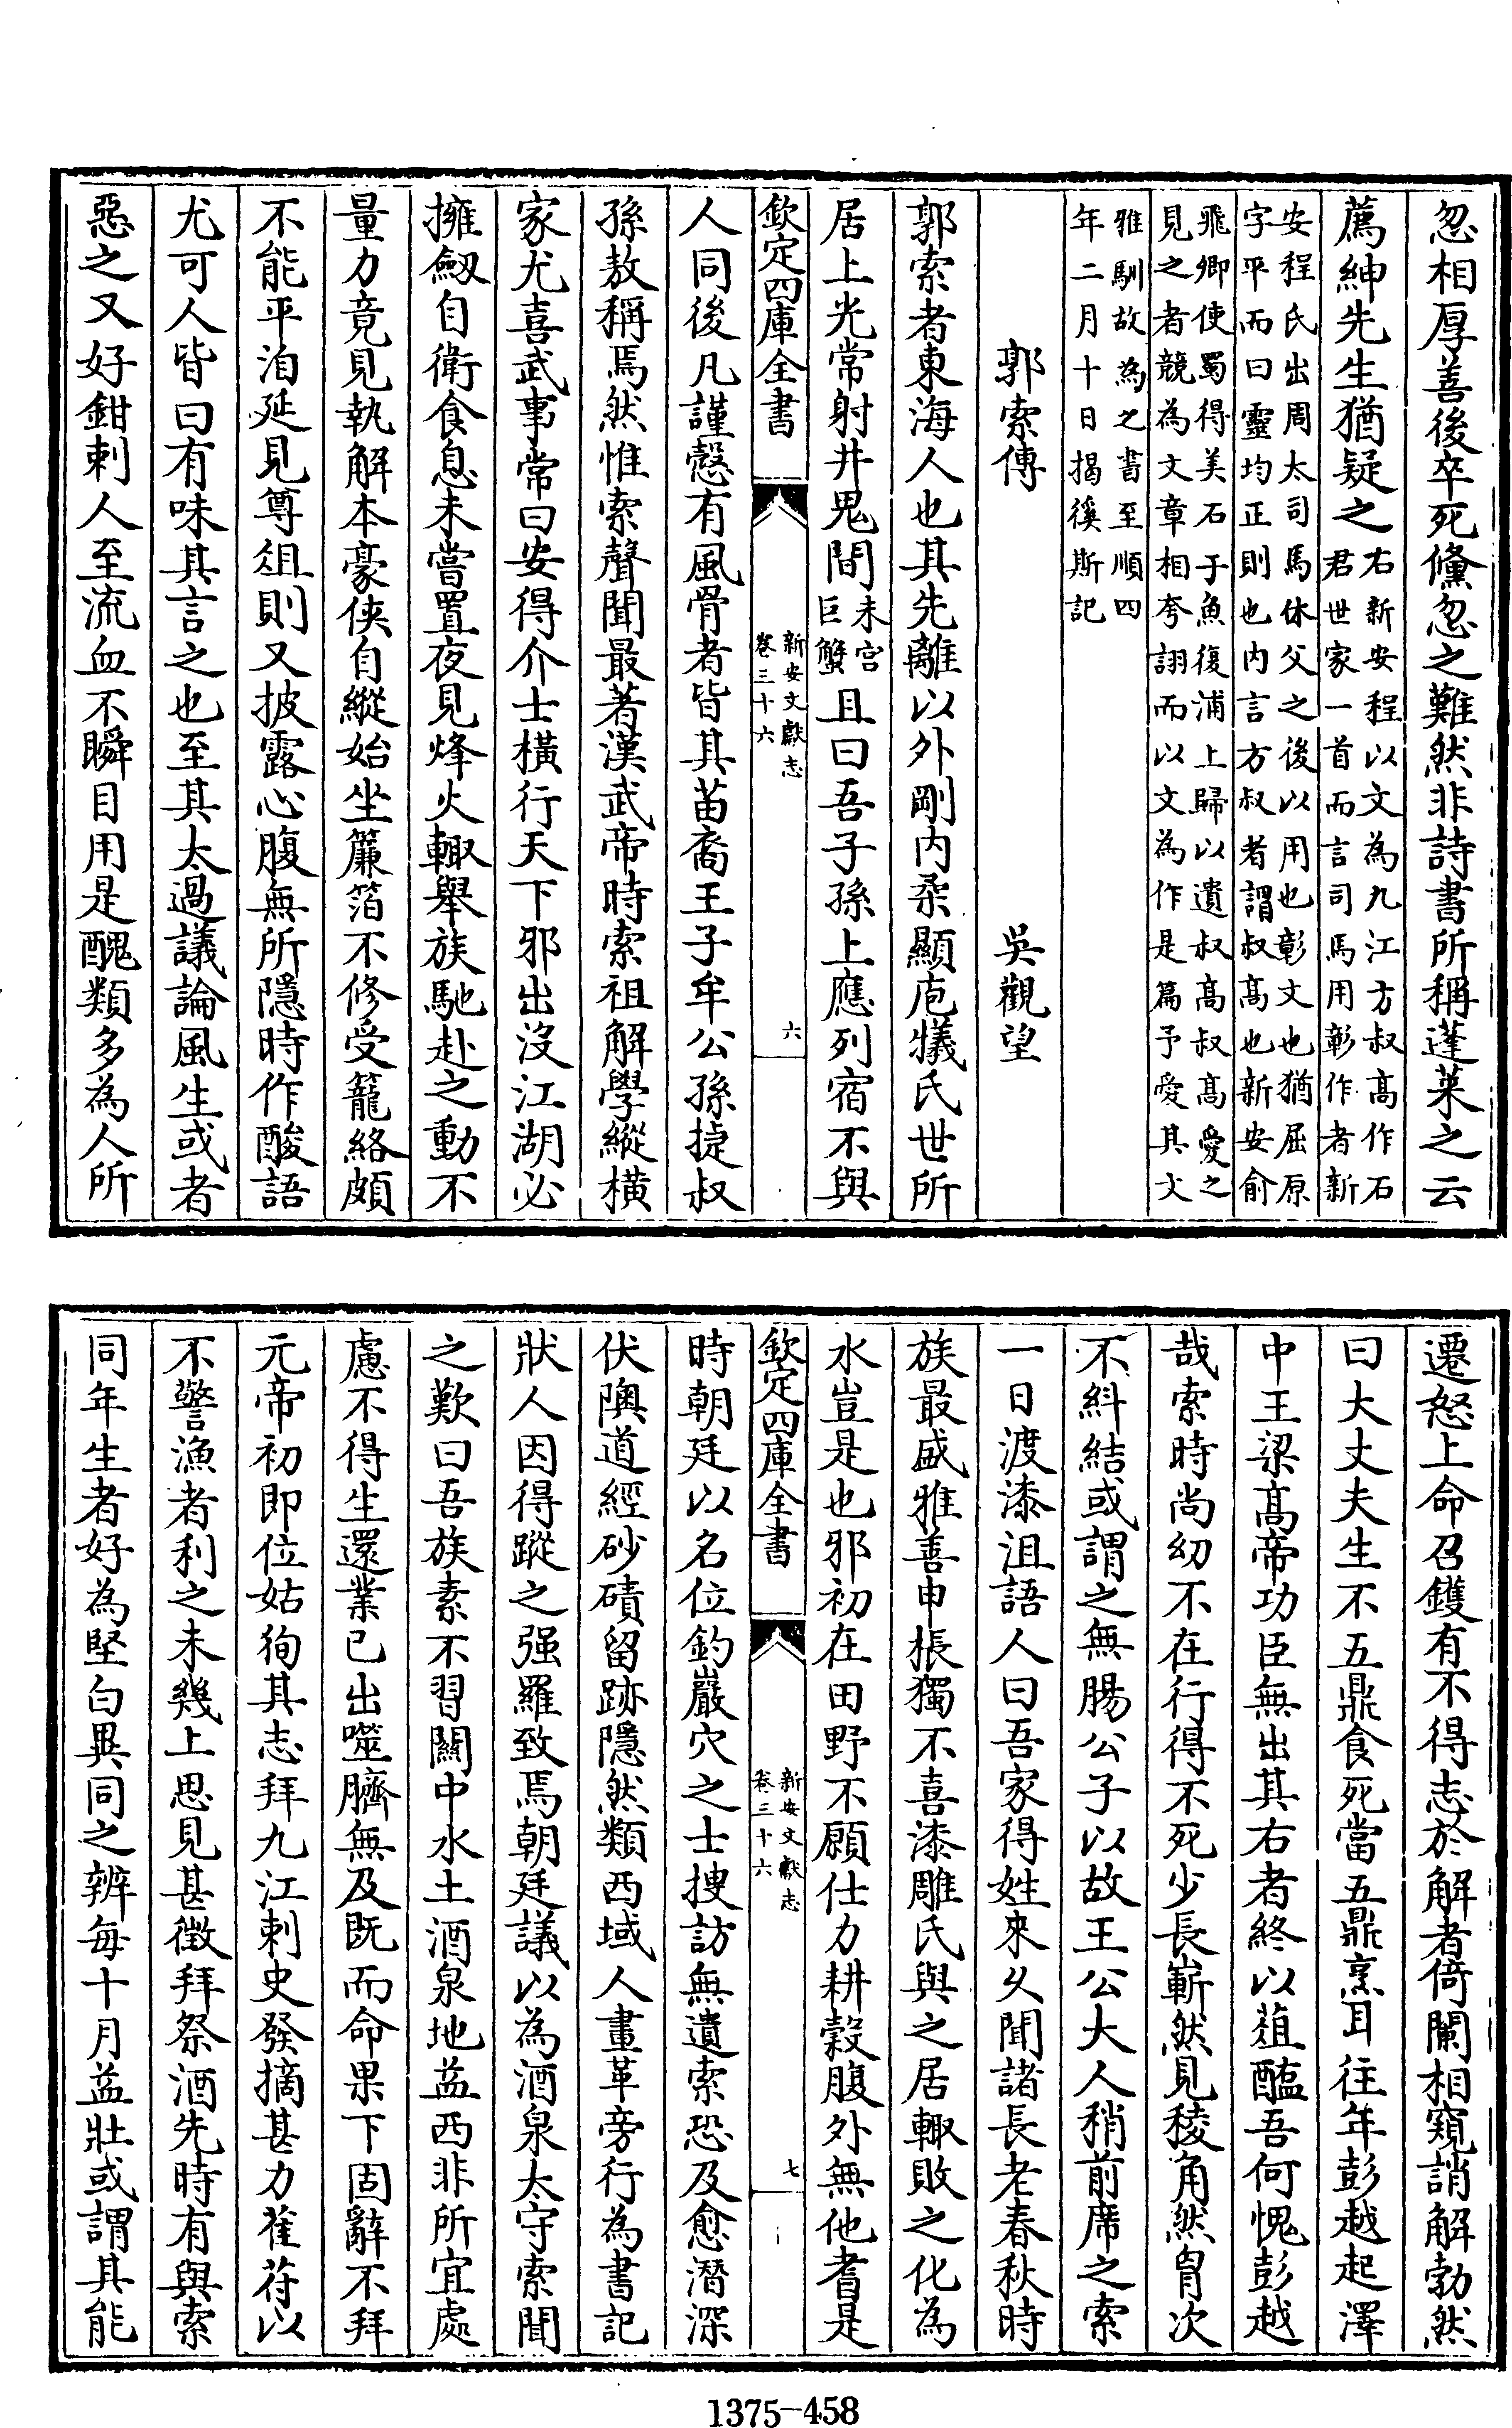 忽相厚善後卒死儵忽之難然非詩書所稱蓬萊之云
薦紳先生猶疑之右新安程以文為九江方叔高作石
君世家一首而言司馬用彰作者新
安程氏出周太司馬休父之後以用也彰文也猶屈原
字平而曰靈均正則也内言方叔者謂叔高也新安俞
飛卿使蜀得美石于魚復浦上歸以遺叔高叔高愛之
見之者競為文章相夸詡而以文為作是篇予愛其文
雅馴故為之書至順四
年二月十日揭徯斯記
郭索傳 吳觀望
郭索者東海人也其先離以外剛内柔顯庖犠氏世所
居上光常射井鬼間未宫
巨蟹且曰吾子孫上應列宿不與
欽定四庫全書
新安文獻志
卷三十六
六
人同後凡謹慤有風骨者皆其苗裔王子牟公孫捷叔
孫敖稱焉然惟索聲聞最著漢武帝時索祖解學縱橫
家尤喜武事常曰安得介士橫行天下邪出沒江湖必
擁劔自衛食息未嘗置夜見烽火輙舉族馳赴之動不
量力竟見執解本豪俠自縱始坐簾箔不修受籠絡頗
不能平洎延見尊俎則又披露心腹無所隱時作酸語
尤可人皆曰有味其言之也至其太過議論風生或者
惡之又好鉗刺人至流血不瞬目用是醜類多為人所
遷怒上命召鑊有不得志於解者倚闌相窺誚解勃然
曰大丈夫生不五鼎食死當五鼎烹耳往年彭越起澤
中王梁髙帝功臣無出其右者終以葅醢吾何愧彭越
哉索時尚幼不在行得不死少長嶄然見稜角然胷次
不糾結或謂之無腸公子以故王公大人稍前席之索
一日渡漆沮語人曰吾家得姓來久聞諸長老春秋時
族最盛雅善申棖獨不喜漆雕氏與之居輙敗之化為
水豈是也邪初在田野不願仕力耕穀腹外無他耆是
欽定四庫全書
新安文獻志
卷三十六
七
時朝廷以名位釣巖穴之士捜訪無遺索恐及愈潛深
伏隩道經砂磧留跡隱然類西域人畫革旁行為書記
狀人因得蹤之强羅致焉朝廷議以為酒泉太守索聞
之歎曰吾族素不習關中水土酒泉地益西非所宜處
慮不得生還業已出噬臍無及既而命果下固辭不拜
元帝初即位姑狥其志拜九江刺史發摘甚力萑苻以
不警漁者利之未幾上思見甚徴拜祭酒先時有與索
同年生者好為堅白異同之辨每十月益壯或謂其能
1375-458